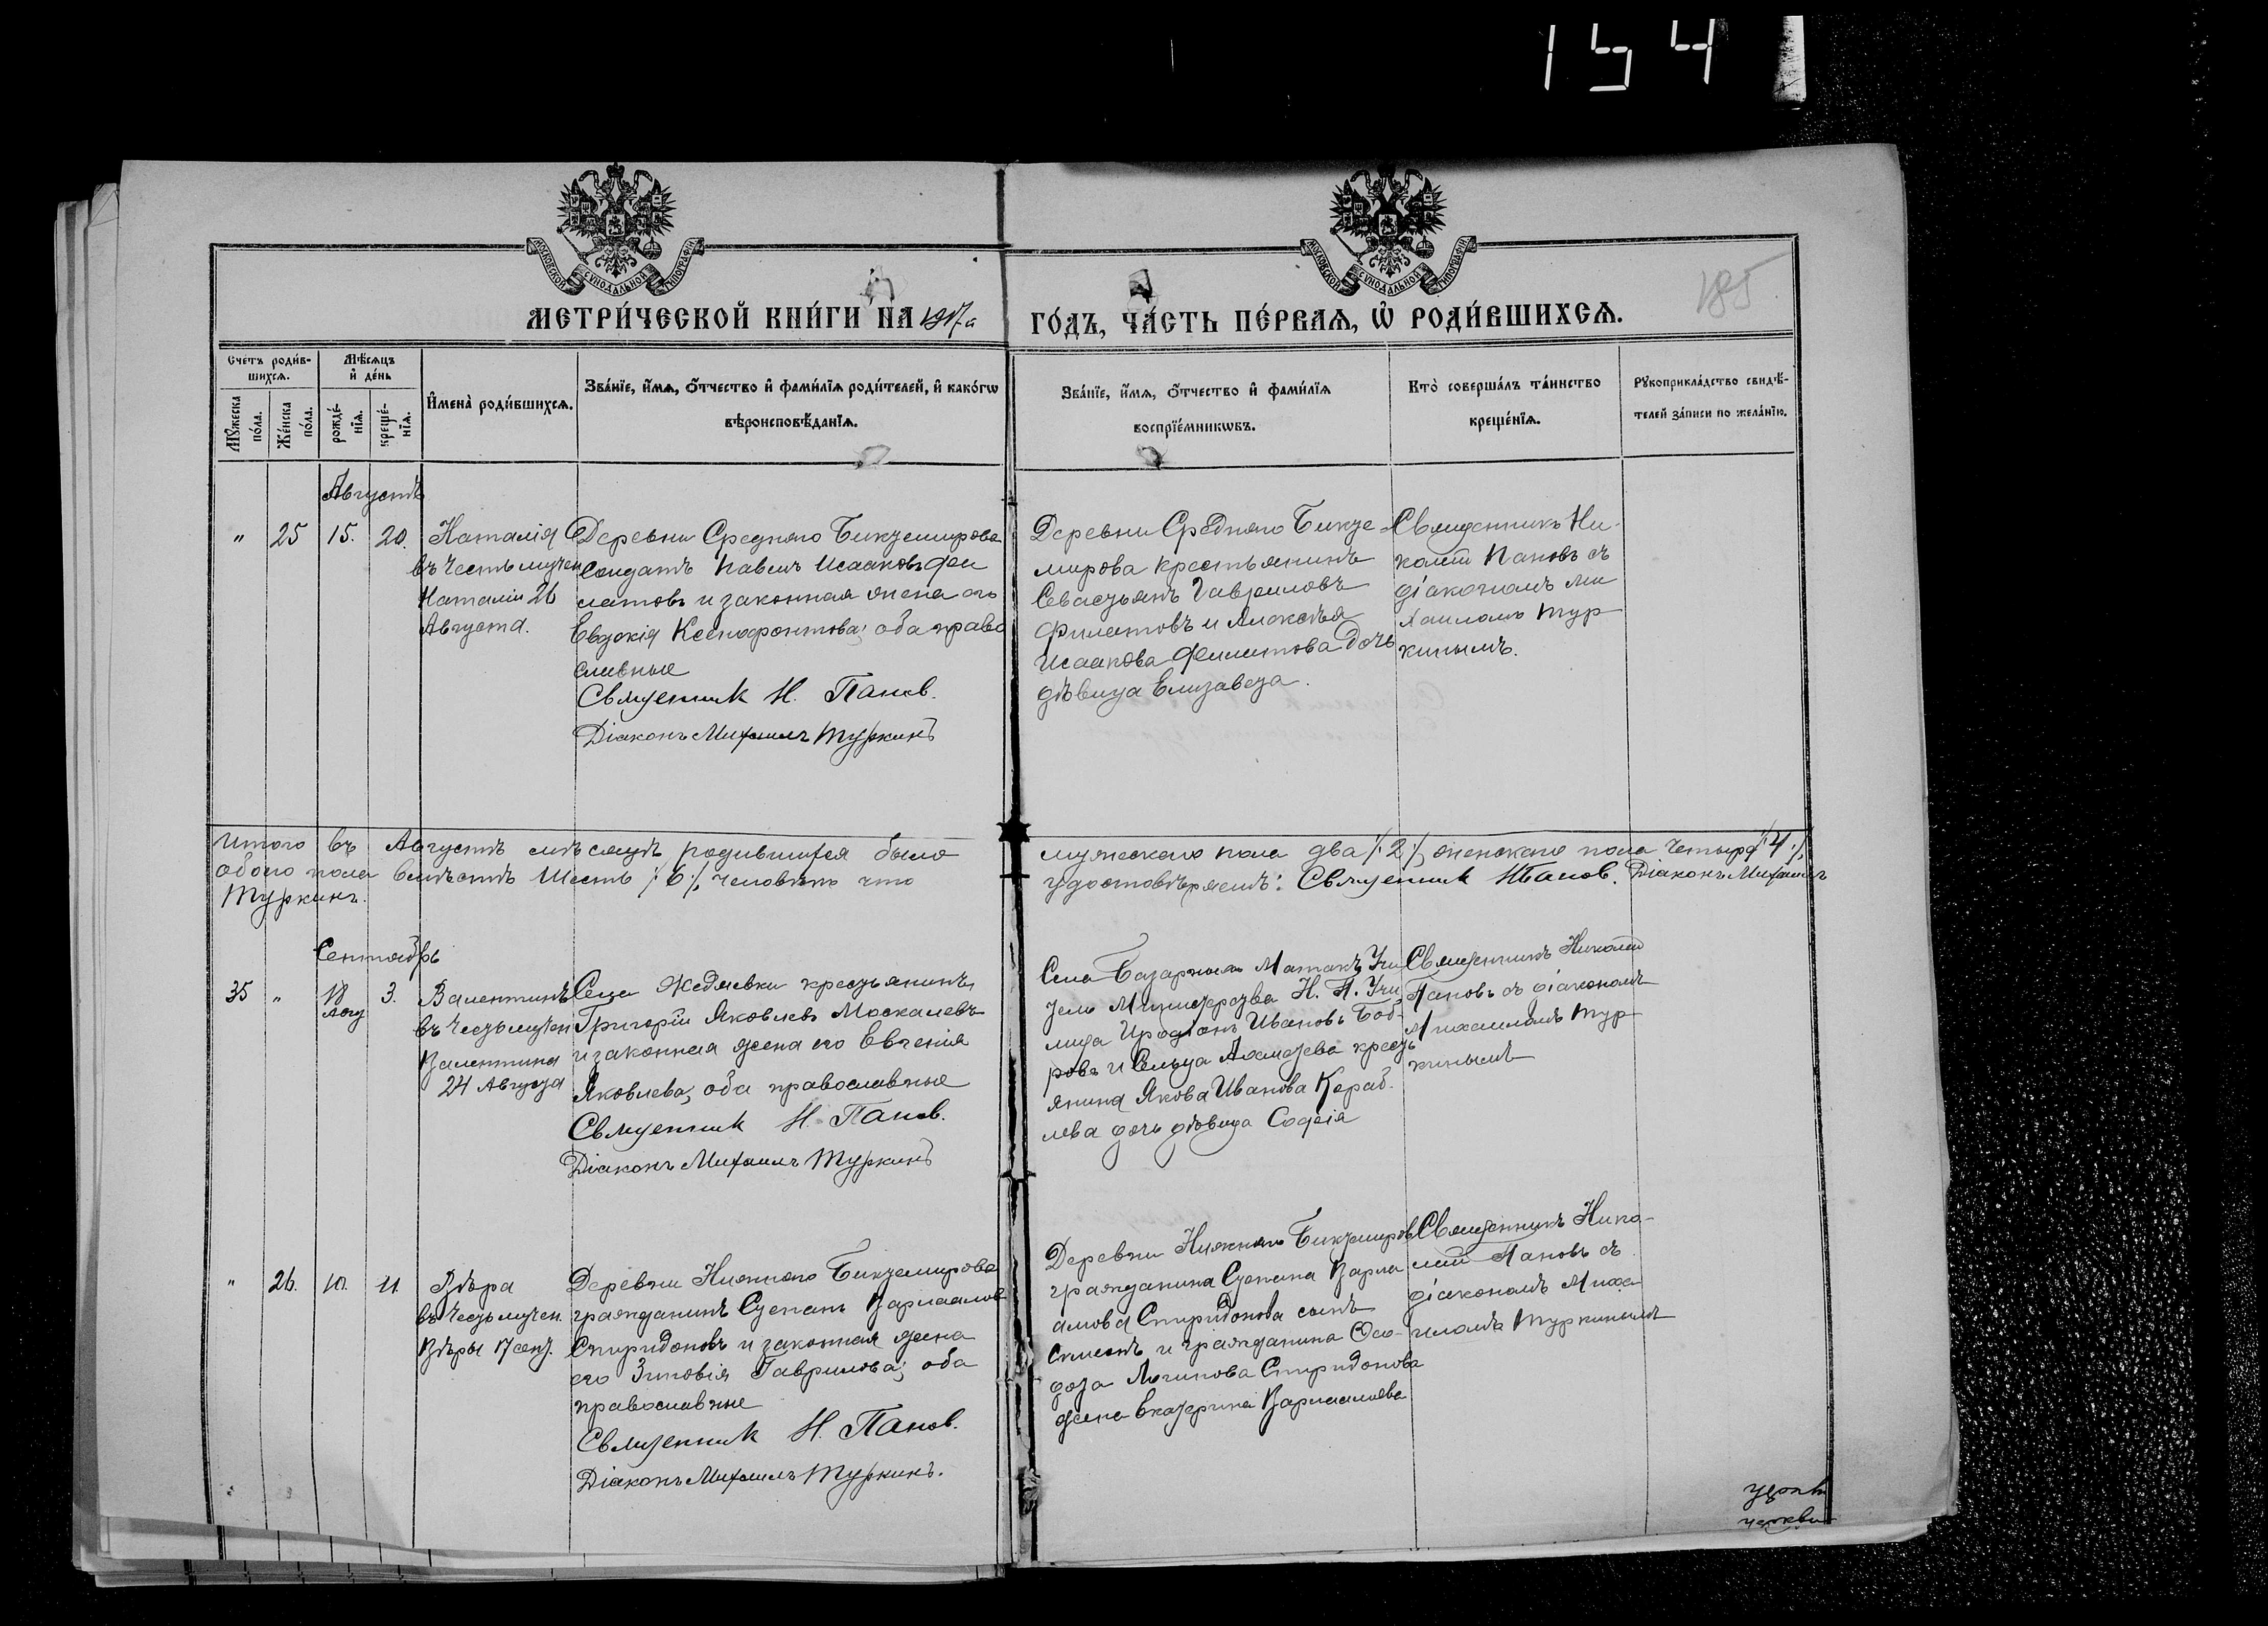 154
МОСКОВСКОЙ СѴНОДАЛЬНОЙ ТИПОГРАФІИ
МОСКОВСКОЙ СѴНОДАЛЬНОЙ ТИПОГРАФІИ
185
МЕТРИ́ЧЕСКОЙ КНИ́ГИ НА 1917 г.
ГО́ДЪ, ЧА́СТЬ ПЕ́РВАѦ, Ѽ РОДИ́ВШИХСѦ.
Сче́тъ роди́в-
шихсѧ.
Мꙋ́жеска по́ла.
Же́нска по́ла.
Мѣ́сѧцъ
и҆ де́нь
рожде́-
нїѧ.
креще́-
нїѧ.
И҆мена̀ роди́вшихсѧ.
Зва́нїе, и҆́мѧ, ѻ҆́тчество и҆ фами́лїѧ роди́телей, и҆ како́гѡ
вѣроисповѣ́данїѧ.
Зва́нїе, и҆́мѧ, ѻ҆́тчество и҆ фами́лїѧ
воспрїе́мникѡвъ.
Кто̀ соверша́лъ та́инство
креще́нїѧ.
Рꙋкоприкла́дство свидѣ́-
телей за́писи по жела́нїю.
Августъ
" 25 15. 20.
Наталія
въ честь мучен
Наталіи 26
Августа.
Деревни Средняго Бикземирова
Солдатъ Павелъ Исааковъ Фи
латовъ и законная жена его
Евдокія Ксенофонтова; оба право
славные
Священник Н. Панов.
Діаконъ Михаилъ Туркинъ
Деревни Средняго Бикзе
мирова крестьянинъ
Севастьянъ Гавриловъ
Филатовъ и Алексѣя
Исаакова Филатова дочь
дѣвица Елизавета.
Священникъ Ни
колай Пановъ съ
діакономъ Ми
хаиломъ Тур
кинымъ.
Итого въ Августѣ мѣсяцѣ родившихся было
мужескаго пола два /:2:/, женскаго пола четыре /:4:/,
обоего пола вмѣстѣ шесть /:6:/ человѣкъ что
удостовѣряемъ: Священник Н Панов. Діаконъ Михаилъ
Туркинъ.
Сентябрь
35 " 18 Авгу 3.
Валентинъ
въ честь мучен
Валентина
24 Августа
Села Жедяевки крестьянинъ
Григорій Яковлевъ Москалевъ
и законная жена его Евгенія
Яковлева; оба православные
Священник Н. Панов.
Діаконъ Михаилъ Туркинъ
Села Базарныхъ Матакъ Учи
тель Министерства Н. П. Учи
лища Иродіонъ Ивановъ Боб-
ровъ и Сельца Ахметева кресть
янина Якова Иванова Кораб
лева дочь дѣвица Софія
Священникъ Николай
Пановъ съ діакономъ
Михаиломъ Тур
кинымъ
" 26. 10. 11.
Вѣра
въ честь мучен.
Вѣры 17 сент.
Деревни Нижняго Бикземирова
гражданинъ Степанъ Варлаамовъ
Спиридоновъ и законная жена
его Зиновія Гаврилова; оба
православные
Священник Н. Панов.
Діаконъ Михаилъ Туркинъ.
Деревни Нижняго Бикземирова
гражданина Степана Варла
амова Спиридонова сынъ
и гражданина Ѳео-
дота Логинова Спиридонова
жена Екатерина Варлаамова
Священникъ Нико-
лай Пановъ съ
діакономъ Миха
иломъ Туркинымъ
церкви